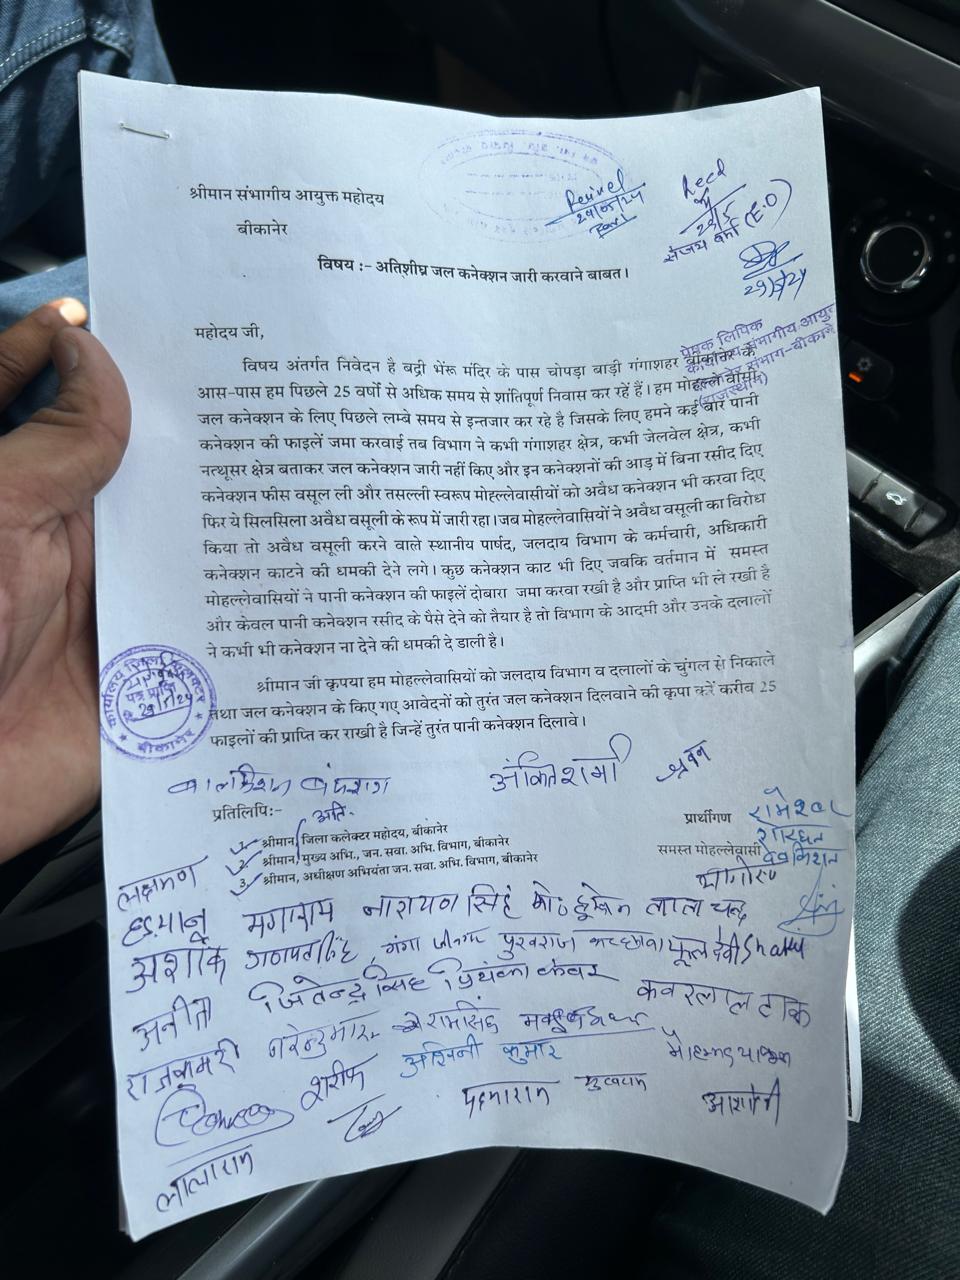 श्रीमान संभागीय आयुक्त महोदय
बीकानेर
29/05/24
Recd
29/5
संजय वर्मा (E.O)
29/5/24
विषय :- अतिशीघ्र जल कनेक्शन जारी करवाने बाबत।
महोदय जी,
प्रेषक लिपिक
कार्यालय संभागीय आयुक्त
बीकानेर संभाग-बीकानेर
(राजस्थान)
विषय अंतर्गत निवेदन है बद्री भेंरू मंदिर के पास चोपड़ा बाड़ी गंगाशहर बीकानेर के
आस-पास हम पिछले 25 वर्षो से अधिक समय से शांतिपूर्ण निवास कर रहें हैं। हम मोहल्ले वासी
जल कनेक्शन के लिए पिछले लम्बे समय से इन्तजार कर रहे है जिसके लिए हमने कई बार पानी
कनेक्शन की फाइलें जमा करवाई तब विभाग ने कभी गंगाशहर क्षेत्र, कभी जेलवेल क्षेत्र, कभी
नत्थूसर क्षेत्र बताकर जल कनेक्शन जारी नहीं किए और इन कनेक्शनों की आड़ में बिना रसीद दिए
कनेक्शन फीस वसूल ली और तसल्ली स्वरूप मोहल्लेवासीयों को अवैध कनेक्शन भी करवा दिए
फिर ये सिलसिला अवैध वसूली के रूप में जारी रहा। जब मोहल्लेवासियों ने अवैध वसूली का विरोध
किया तो अवैध वसूली करने वाले स्थानीय पार्षद, जलदाय विभाग के कर्मचारी, अधिकारी
कनेक्शन काटने की धमकी देने लगे। कुछ कनेक्शन काट भी दिए जबकि वर्तमान में समस्त
मोहल्लेवासियों ने पानी कनेक्शन की फाइलें दोबारा जमा करवा रखी है और प्राप्ति भी ले रखी है
और केवल पानी कनेक्शन रसीद के पैसे देने को तैयार है तो विभाग के आदमी और उनके दलालों
ने कभी भी कनेक्शन ना देने की धमकी दे डाली है।
श्रीमान जी कृपया हम मोहल्लेवासियों को जलदाय विभाग व दलालों के चुंगल से निकाले
तथा जल कनेक्शन के किए गए आवेदनों को तुरंत जल कनेक्शन दिलवाने की कृपा करें करीब 25
फाइलों की प्राप्ति कर राखी है जिन्हें तुरंत पानी कनेक्शन दिलावे।
कार्यालय जिला कलेक्टर
पत्र प्राप्ति
बीकानेर
अंकित शर्मा
श्रवन
प्रतिलिपि:-
अति.
1. श्रीमान, जिला कलेक्टर महोदय, बीकानेर
2. श्रीमान, मुख्य अभि., जन. सवा. अभि. विभाग, बीकानेर
3. श्रीमान, अधीक्षण अभियंता जन. सवा. अभि. विभाग, बीकानेर
प्रार्थीगण
समस्त मोहल्लेवासी
रामेश्वर
देवकिशन
लक्ष्मण
मगाराम नारायण सिंह लाल चन्द
अशोक गणपतसिंह, पुखराज फूल देवी
अनीता जितेन्द्र सिंह प्रियंका कंवर कवरलाल टाक
राजकुमारी
शरीफ अश्विनी कुमार
पदमाराम
लालाराम